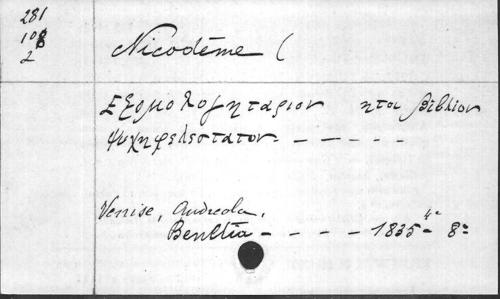 281
108
2
Nicodème (
Εξομολογηταριον ητοι βιβλιον
ψυχηφελεστατον - - - - -
Venise, Andreola,
Βενετία - - - - 1835 4e 8o